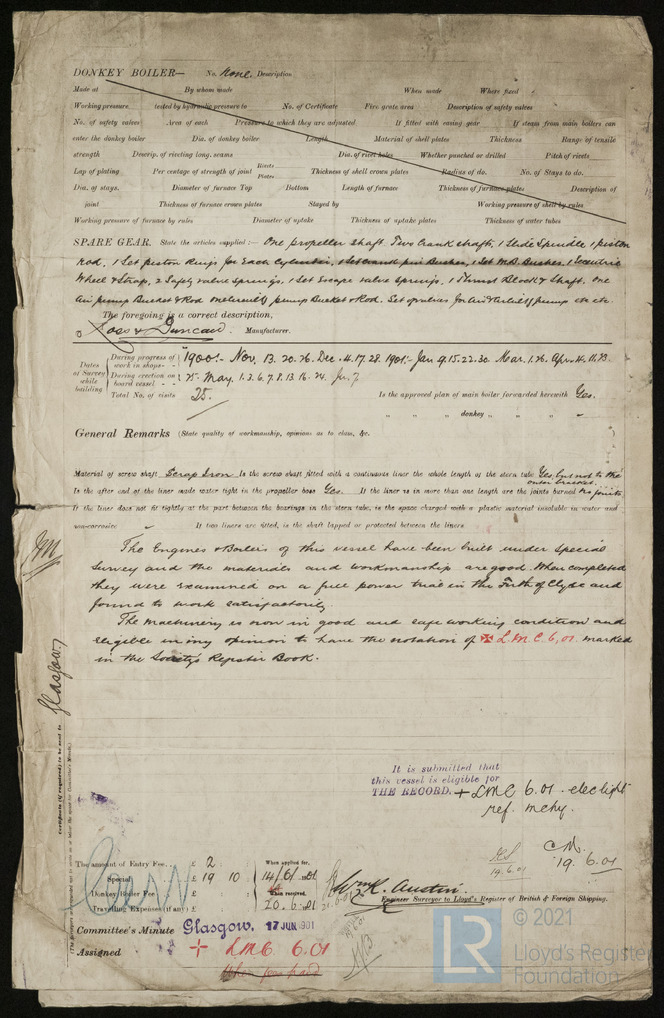 DONKEY BOILER— No. None Description
Made at By whom made When made Where fixed
Working pressure tested by hydraulic pressure to No. of Certificate Fire grate area Description of safety valves
No. of safety valves Area of each Pressure to which they are adjusted If fitted with easing gear If steam from main boilers can
enter the donkey boiler Dia. of donkey boiler Length Material of shell plates Thickness Range of tensile
strength Descrip. of riveting long. seams Dia. of rivet holes Whether punched or drilled Pitch of rivets
Lap of plating Per centage of strength of joint Rivets Plates Thickness of shell crown plates Radius of do. No. of Stays to do.
Dia. of stays. Diameter of furnace Top Bottom Length of furnace Thickness of furnace plates Description of
joint Thickness of furnace crown plates Stayed by Working pressure of shell by rules
Working pressure of furnace by rules Diameter of uptake Thickness of uptake plates Thickness of water tubes
SPARE GEAR. State the articles supplied:— One propeller shaft. Two Crank shafts, 1 Slide Spindle 1 piston
Rod, 1 Set piston Rings for Each Cylinder, 1 Set Crank pin Bushes, 1 Set M.B. Bushes. 1 Eccentric
Wheel & Strap, 2 Safety valve springs. 1 Set Escape valve Springs. 1 Thrust Block & Shaft. One
Air pump Bucket & Rod pump Bucket & Rod. Set of valves for Air & pump etc etc.
The foregoing is a correct description,
Ross & Duncan. Manufacturer.
Dates of Survey while building
During progress of work in shops - - 1900:- Nov. 13. 20. 26. Dec. 4. 17. 28. 1901:- Jan 9. 15. 22. 30. Mar. 1. 26. Apr. 4. 11. 23.
During erection on board vessel - - 25. May. 1. 3. 6. 7. 8. 13. 16. 24. Jun. 7
Total No. of visits 25. Is the approved plan of main boiler forwarded herewith Yes.
" " " donkey " " "
General Remarks (State quality of workmanship, opinions as to class, &c.
Material of screw shaft Scrap Iron Is the screw shaft fitted with a continuous liner the whole length of the stern tube Yes, but not to the outer bracket.
Is the after end of the liner made water tight in the propeller boss Yes. If the liner is in more than one length are the joints burned No joints
If the liner does not fit tightly at the part between the bearings in the stern tube, is the space charged with a plastic material insoluble in water and
non-corrosive If two liners are fitted, is the shaft lapped or protected between the liners
The Engines & Boilers of this vessel have been built under special
Survey and the materials and workmanship are good. When completed
they were examined on a full power trial in the Firth of Clyde and
found to work satisfactorily.
The Machinery is now in good and safe working condition and
eligible in my opinion to have the notation of ✠ L.M.C. 6,01. marked
in the Society's Register Book.
Glasgow.
It is submitted that
this vessel is eligible for
THE RECORD. + LMC 6.01. elec light
ref. mchy.
19.6.01
19.6.01
The amount of Entry Fee £ 2 When applied for,
Special £ 19 10 14/6/1901
Donkey Boiler Fee £ When received,
Travelling Expenses (if any) £ 20.6.01
Wm R. Austin.
Engineer Surveyor to Lloyd's Register of British & Foreign Shipping.
Committee's Minute Glasgow. 17 JUN 1901
Assigned + LMC 6.01
When fee paid
LR
© 2021
Lloyd's Register
Foundation